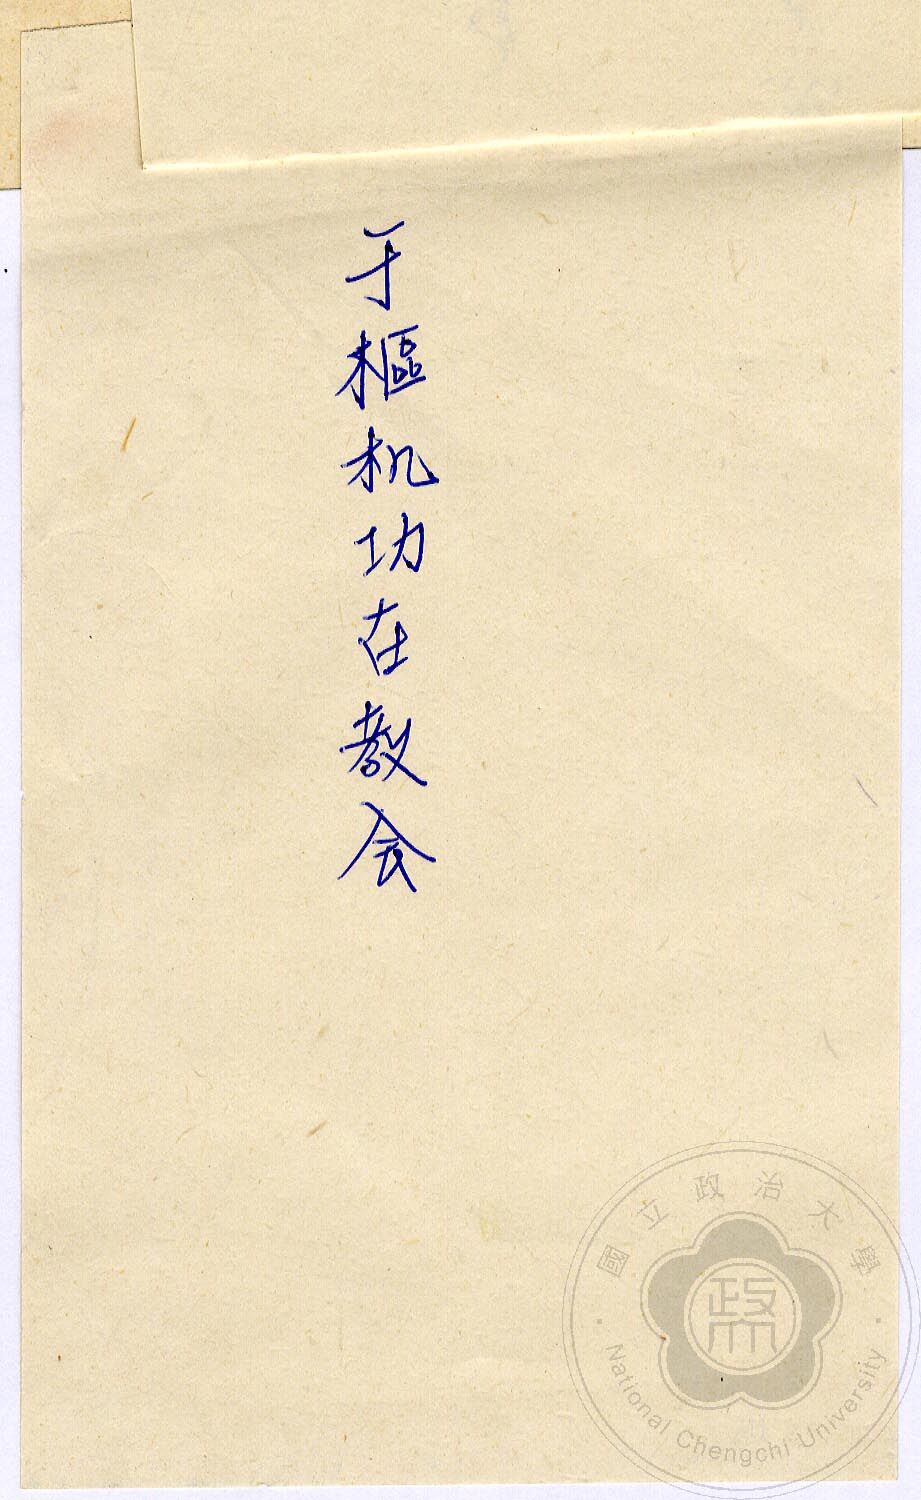 于樞机功在教会
國立政治大學
政大
National Chengchi University